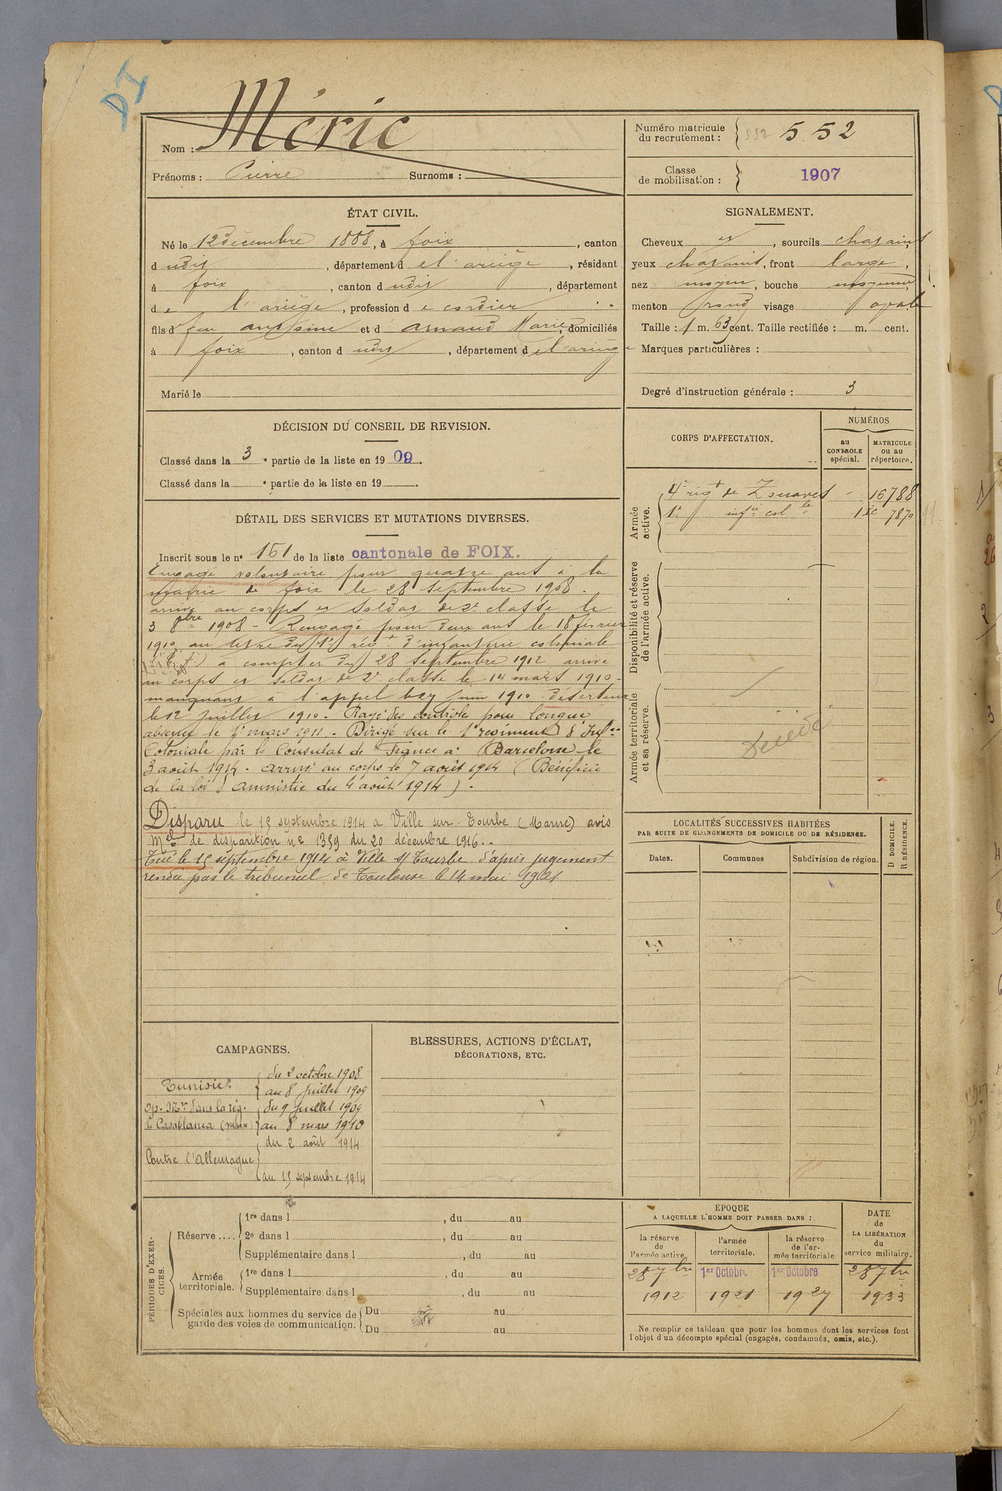 Nom : Méric
Prénoms : Pierre Surnoms :
Numéro matricule du recrutement : 552
Classe de mobilisation : 1907
ÉTAT CIVIL.
Né le 12 Décembre 1888, à foix, canton
d udit, département d e l'ariège, résidant
à foix, canton d udit, département
d e l'ariège, profession d e cordier
fils d feu antoine et d arnaud Marie, domiciliés
à foix, canton d udit, département d e l'ariège
Marié le
SIGNALEMENT.
Cheveux et, sourcils chatains
yeux chatains, front large,
nez moyen, bouche moyenne,
menton rond visage ovale
Taille : 1 m. 63 cent. Taille rectifiée : m. cent.
Marques particulières :
Degré d'instruction générale : 3
DÉCISION DU CONSEIL DE REVISION.
Classé dans la 3e partie de la liste en 1909.
Classé dans la e partie de la liste en 19
CORPS D'AFFECTATION.
NUMÉROS
au CONTRÔLE spécial.
MATRICULE ou au répertoire.
Armée active.
4e régt de Zouaves - 16788
1er infie colle 7870
Disponibilité et réserve de l'armée active.
Armée territoriale et sa réserve.
Décédé
DÉTAIL DES SERVICES ET MUTATIONS DIVERSES.
Inscrit sous le no 151 de la liste cantonale de FOIX.
Engagé volontaire pour quatre ans à la
mairie de foix le 28 Septembre 1908.
arrivé au corps et soldat de 2e classe le
3 8bre 1908 - Rengagé pour deux ans le 18 février
1910 au titre du 1er régt d'infanterie coloniale
à compter du 28 Septembre 1912 arrivé
au corps et soldat de 2e classe le 14 mars 1910 -
manquant à l'appel juin 1910 déserteur
le 12 juillet 1910. Rayé des contrôles pour longue
absence le 1er mars 1911. Dirigé sur le 1er régiment d'Infie
Coloniale par le Consulat de France à Barcelone le
3 août 1914. arrivé au corps le 7 août 1914 (Bénéficie
de la loi d'amnistie du 4 août 1914).
Disparu le 15 septembre 1914 à Ville sur Tourbe (Marne) avis
Mel de disparition no 1359 du 20 décembre 1916.
Tué le 15 septembre 1914 à Ville s/ Tourbe d'après jugement
rendu par le tribunal de Toulouse le 14 mai 1921
LOCALITÉS SUCCESSIVES HABITÉES
PAR SUITE DE CHANGEMENTS DE DOMICILE OU DE RÉSIDENCE.
Dates. Communes Subdivision de région.
D DOMICILE. R RÉSIDENCE.
CAMPAGNES.
Tunisie du 2 octobre 1908
au 8 juillet 1909
op. Mres dans la rég. du 9 juillet 1909
de Casablanca (Maroc) au 8 mars 1910
Contre l'Allemagne du 2 août 1914
au 15 septembre 1914
BLESSURES, ACTIONS D'ÉCLAT,
DÉCORATIONS, ETC.
PÉRIODES D'EXERCICES.
Réserve .... 1re dans l, du au
2e dans l, du au
Supplémentaire dans l, du au
Armée territoriale. 1re dans l, du au
Supplémentaire dans l, du au
Spéciales aux hommes du service de garde des voies de communication. Du au
Du au
ÉPOQUE
A LAQUELLE L'HOMME DOIT PASSER DANS :
la réserve de l'armée active.
l'armée territoriale.
la réserve de l'armée territoriale
DATE de LA LIBÉRATION du service militaire.
28 7bre 1er Octobre 1er Octobre 28 7bre
1912 1921 1927 1933
Ne remplir ce tableau que pour les hommes dont les services font
l'objet d'un décompte spécial (engagés, condamnés, omis, etc.).